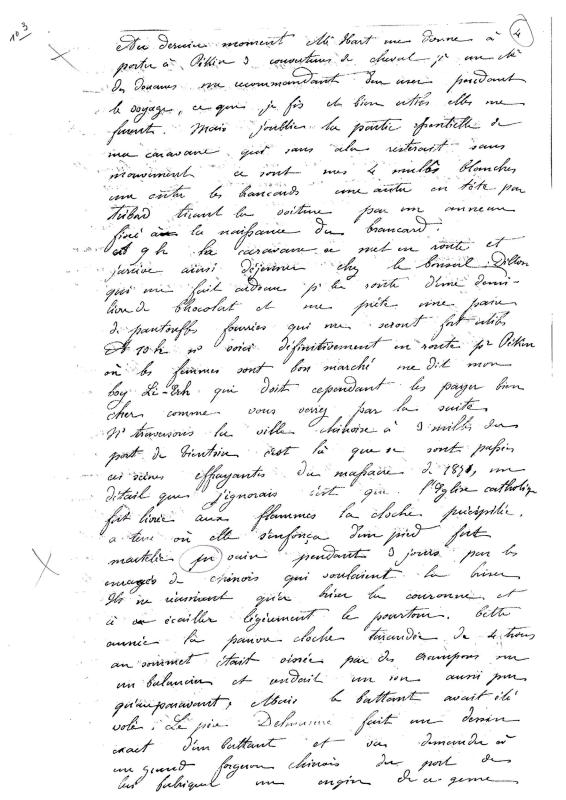 no 3
4
Au dernier moment Mr Hart me donne à
porter à Pékin 3 couvertures de cheval, je un Mr
des Douanes me recommandant d'en user pendant
le voyage, ce que je fis et bien utiles elles me
furent. Mais j'oubliais la partie essentielle de
ma caravane qui sans cela resterait sans
mouvement ce sont mes 4 mulets blanches
une entre les brancards une autre en tête par
tirant la voiture par un anneau
fixé à la naissance du brancard.
A 9 h la caravane se met en route et
j'arrive ainsi déjeuner chez le Consul Dillon
qui me fait cadeau pr la route d'une demi-
livre de chocolat et me prête une paire
de pantoufles fourrées qui me seront fort utiles
A 10 h ns voici définitivement en route pr Pékin
où les femmes sont bon marché me dit mon
boy Li-Erh qui doit cependant les payer bien
cher comme vous verrez par la suite
Ns traversons la ville chinoise à 3 milles du
port de Tientsin c'est là que se sont passées
ces scènes effrayantes du massacre de 1870, un
détail que j'ignorais c'est que l'Eglise catholique
fut livrée aux flammes la cloche précipitée
a terre où elle s'enfonça d'un pied fut
martelée en vain pendant 3 jours par les
enragés de chinois qui voulaient la briser
Ils ne réussirent qu'à briser la couronne et
à écailler légèrement le pourtour. Cette
année la pauvre cloche taraudée de 4 trous
au sommet était vissée par des crampons sur
un balancier et rendait un son aussi pur
qu'auparavant, Mais le battant avait été
volé. Le père Delmasure fait un dessin
exact d'un battant et va demander à
un grand forgeron chinois du port de
lui fabriquer un engin de ce genre